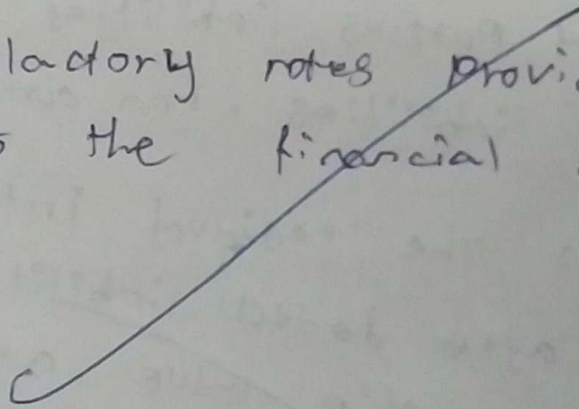 lactory notes provi
the financial